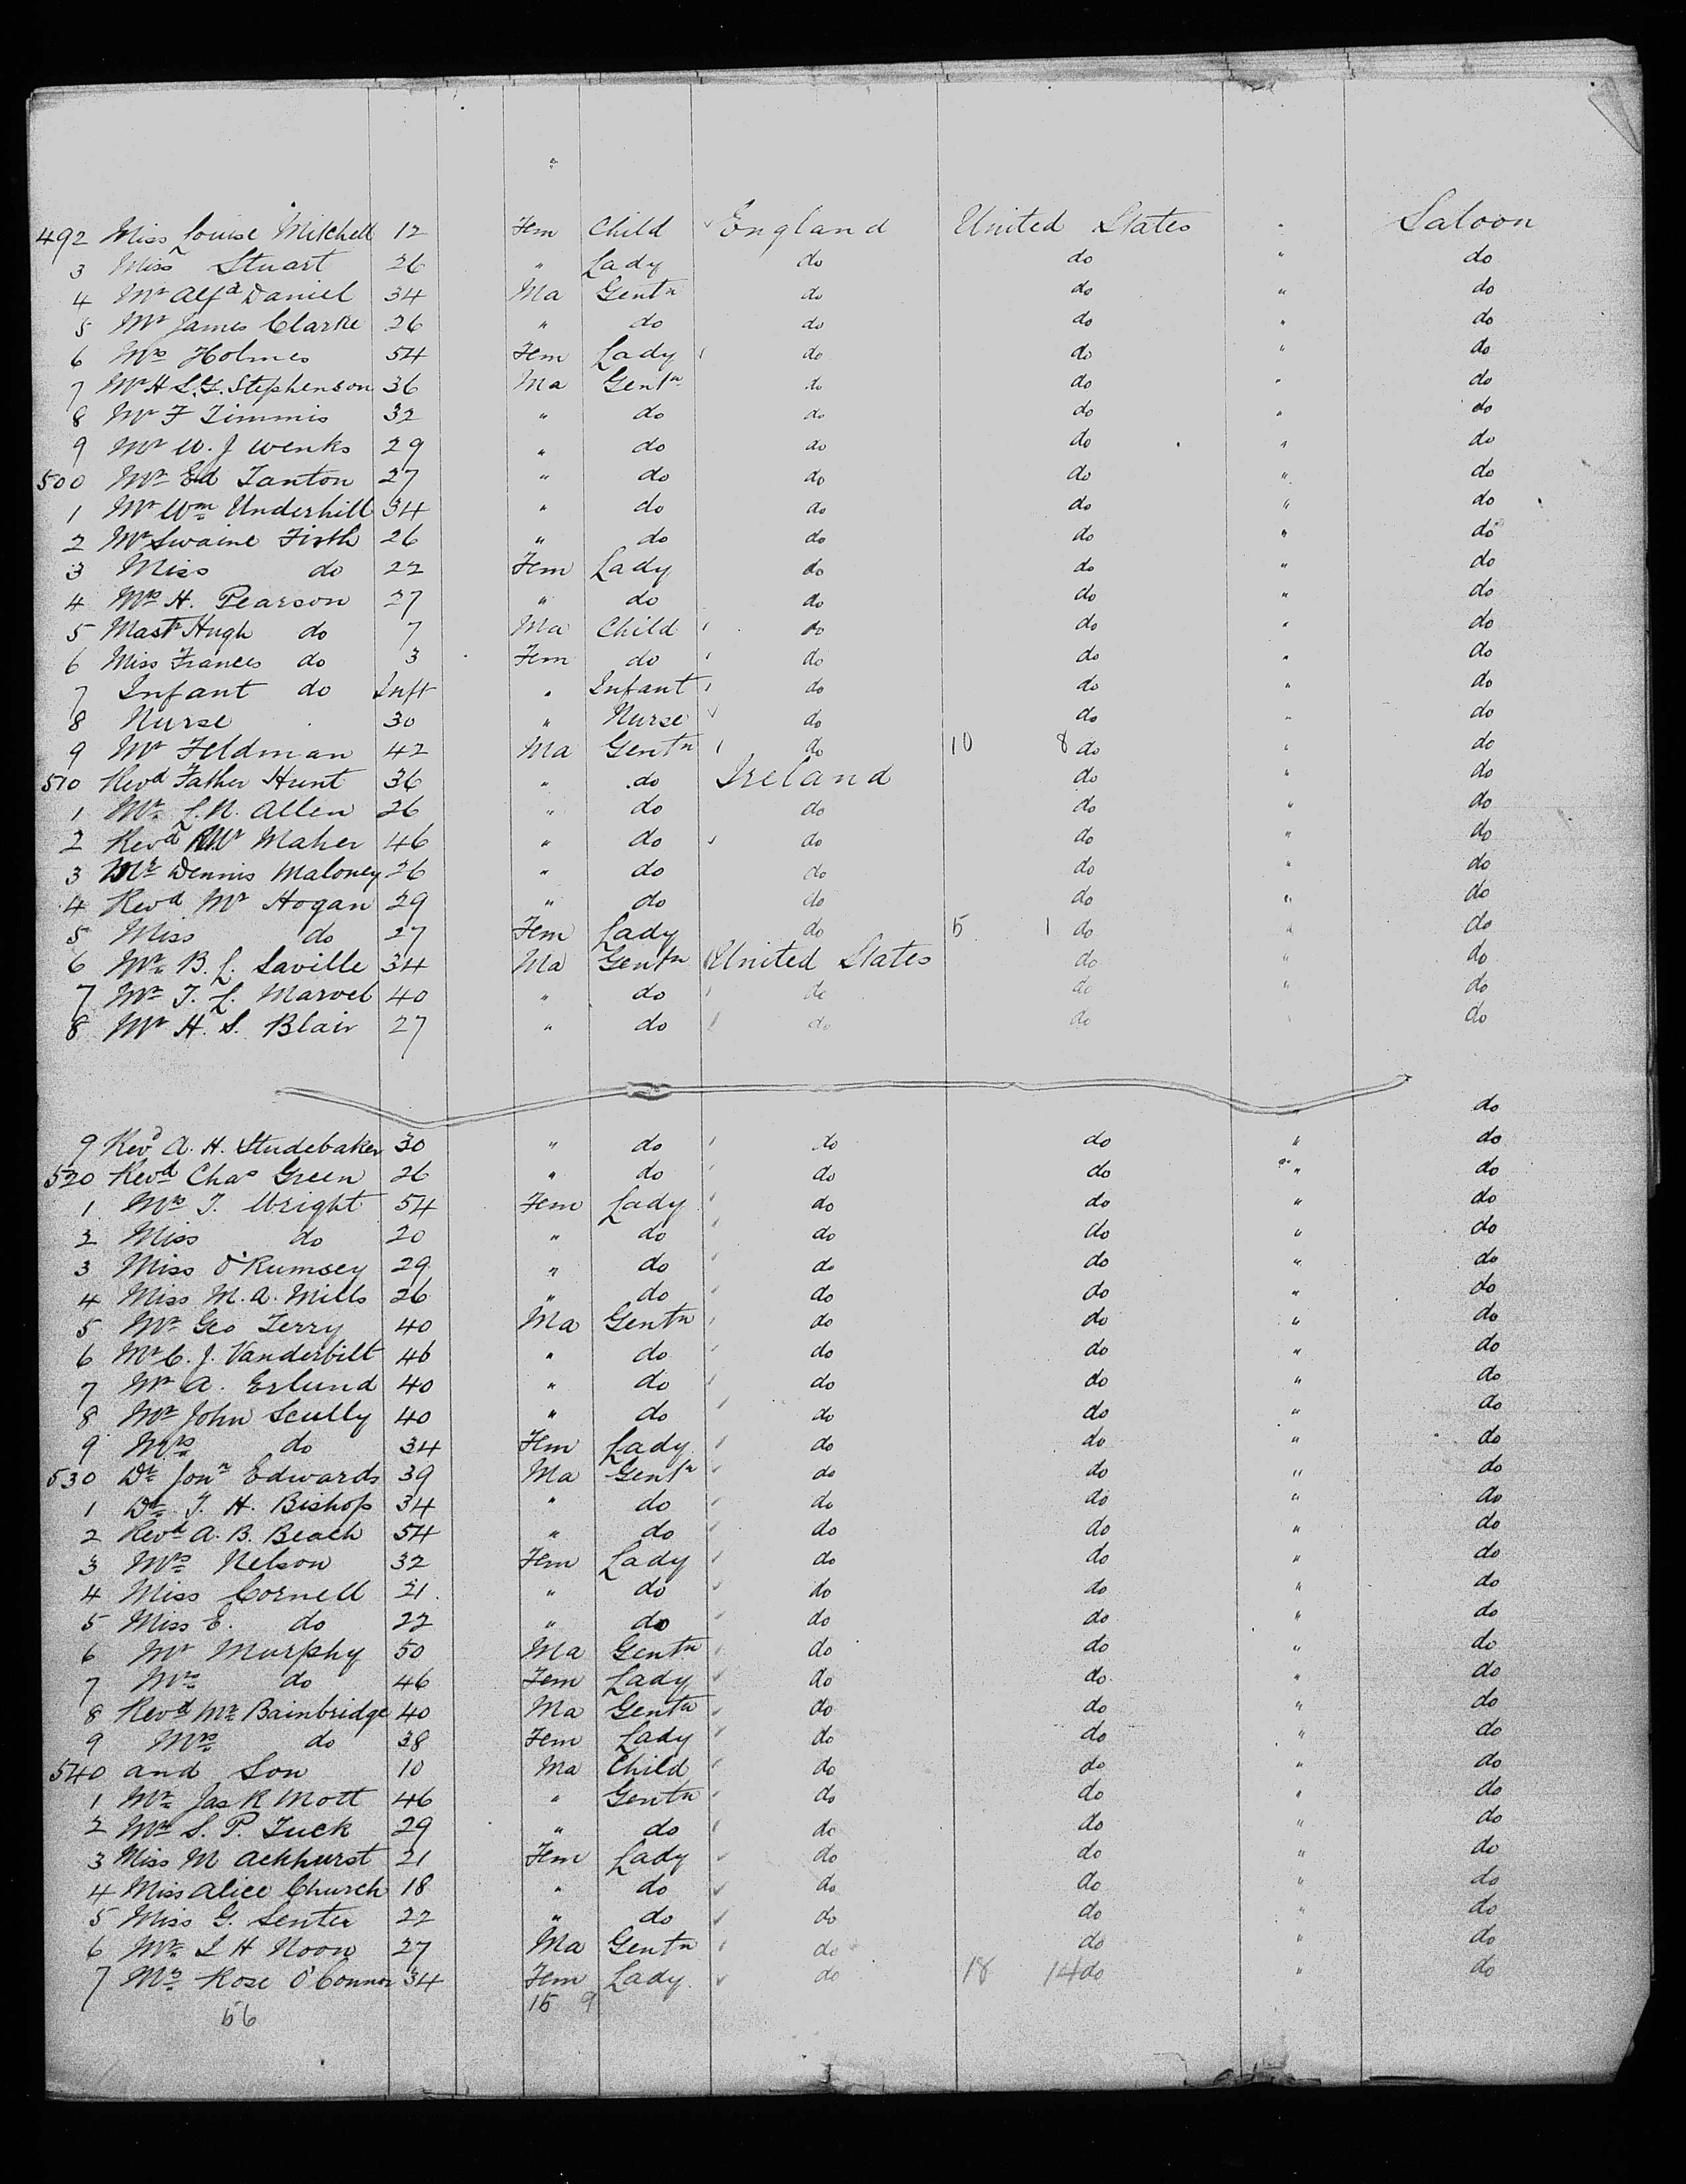 "
492 Miss Louise Mitchell 12 Fem Child England United States " Saloon
3 Miss Stuart 26 " Lady do do " do
4 Mr Alfd Daniel 34 Ma Gentn do do " do
5 Mr James Clarke 26 " do do do " do
6 Mrs Holmes 54 Fem Lady do do " do
7 Mr H L.G. Stephenson 36 Ma Gentn do do " do
8 Mr F Timmis 32 " do do do " do
9 Mr W. J Wenks 29 " do do do " do
500 Mr Ed Tanton 27 " do do do " do
1 Mr Wm Underhill 34 " do do do " do
2 Mr Swaine Firth 26 " do do do " do
3 Miss do 22 Fem Lady do do " do
4 Mrs H. Pearson 27 " do do do " do
5 Mastr Hugh do 7 Ma Child do do " do
6 Miss Frances do 3 Fem do do do " do
7 Infant do Inft " Infant do do " do
8 Nurse 30 " Nurse do do " do
9 Mr Feldman 42 Ma Gentn do 10 8 do " do
510 Revd Father Hunt 36 " do Ireland do " do
1 Mr L.N. Allen 26 " do do do " do
2 Revd Mr Maher 46 " do do do " do
3 Mr Dennis Maloney 26 " do do do " do
4 Revd Mr Hogan 29 " do do do " do
5 Miss do 27 Fem Lady do 5 1 do " do
6 Mr B. L. Saville 34 Ma Gentn United States do " do
7 Mr T. L. Marvel 40 " do do do " do
8 Mr H. S. Blair 27 " do do do " do
" do
9 Revd A. H. Studebaker 30 " do do do " do
520 Revd Chas Green 26 " do do do " do
1 Mrs T. Wright 54 Fem Lady do do " do
2 Miss do 20 " do do do " do
3 Miss O'Rumsey 29 " do do do " do
4 Miss M. A. Mills 26 " do do do " do
5 Mr Geo Terry 40 Ma Gentn do do " do
6 Mr C. J. Vanderbilt 46 " do do do " do
7 Mr A. Erlund 40 " do do do " do
8 Mr John Scully 40 " do do do " do
9 Mrs do 34 Fem Lady do do " do
530 Dr Jonn Edwards 39 Ma Gentn do do " do
1 Dr T. H. Bishop 34 " do do do " do
2 Revd A. B. Beach 54 " do do do " do
3 Mrs Nelson 32 Fem Lady do do " do
4 Miss Cornell 21 " do do do " do
5 Miss E. do 22 " do do do " do
6 Mr Murphy 50 Ma Gentn do do " do
7 Mrs do 46 Fem Lady do do " do
8 Revd Mr Bainbridge 40 Ma Gentn do do " do
9 Mrs do 38 Fem Lady do do " do
540 and Son 10 Ma Child do do " do
1 Mr Jas R Mott 46 " Gentn do do " do
2 Mr S. P. Tuck 29 " do do do " do
3 Miss M Ackhurst 21 Fem Lady do do " do
4 Miss Alice Church 18 " do do do " do
5 Miss G. Senter 22 " do do do " do
6 Mr I H Noon 27 Ma Gentn do do " do
7 Mrs Rose O'Connor 34 Fem Lady do 18 14 do " do
56 15 9